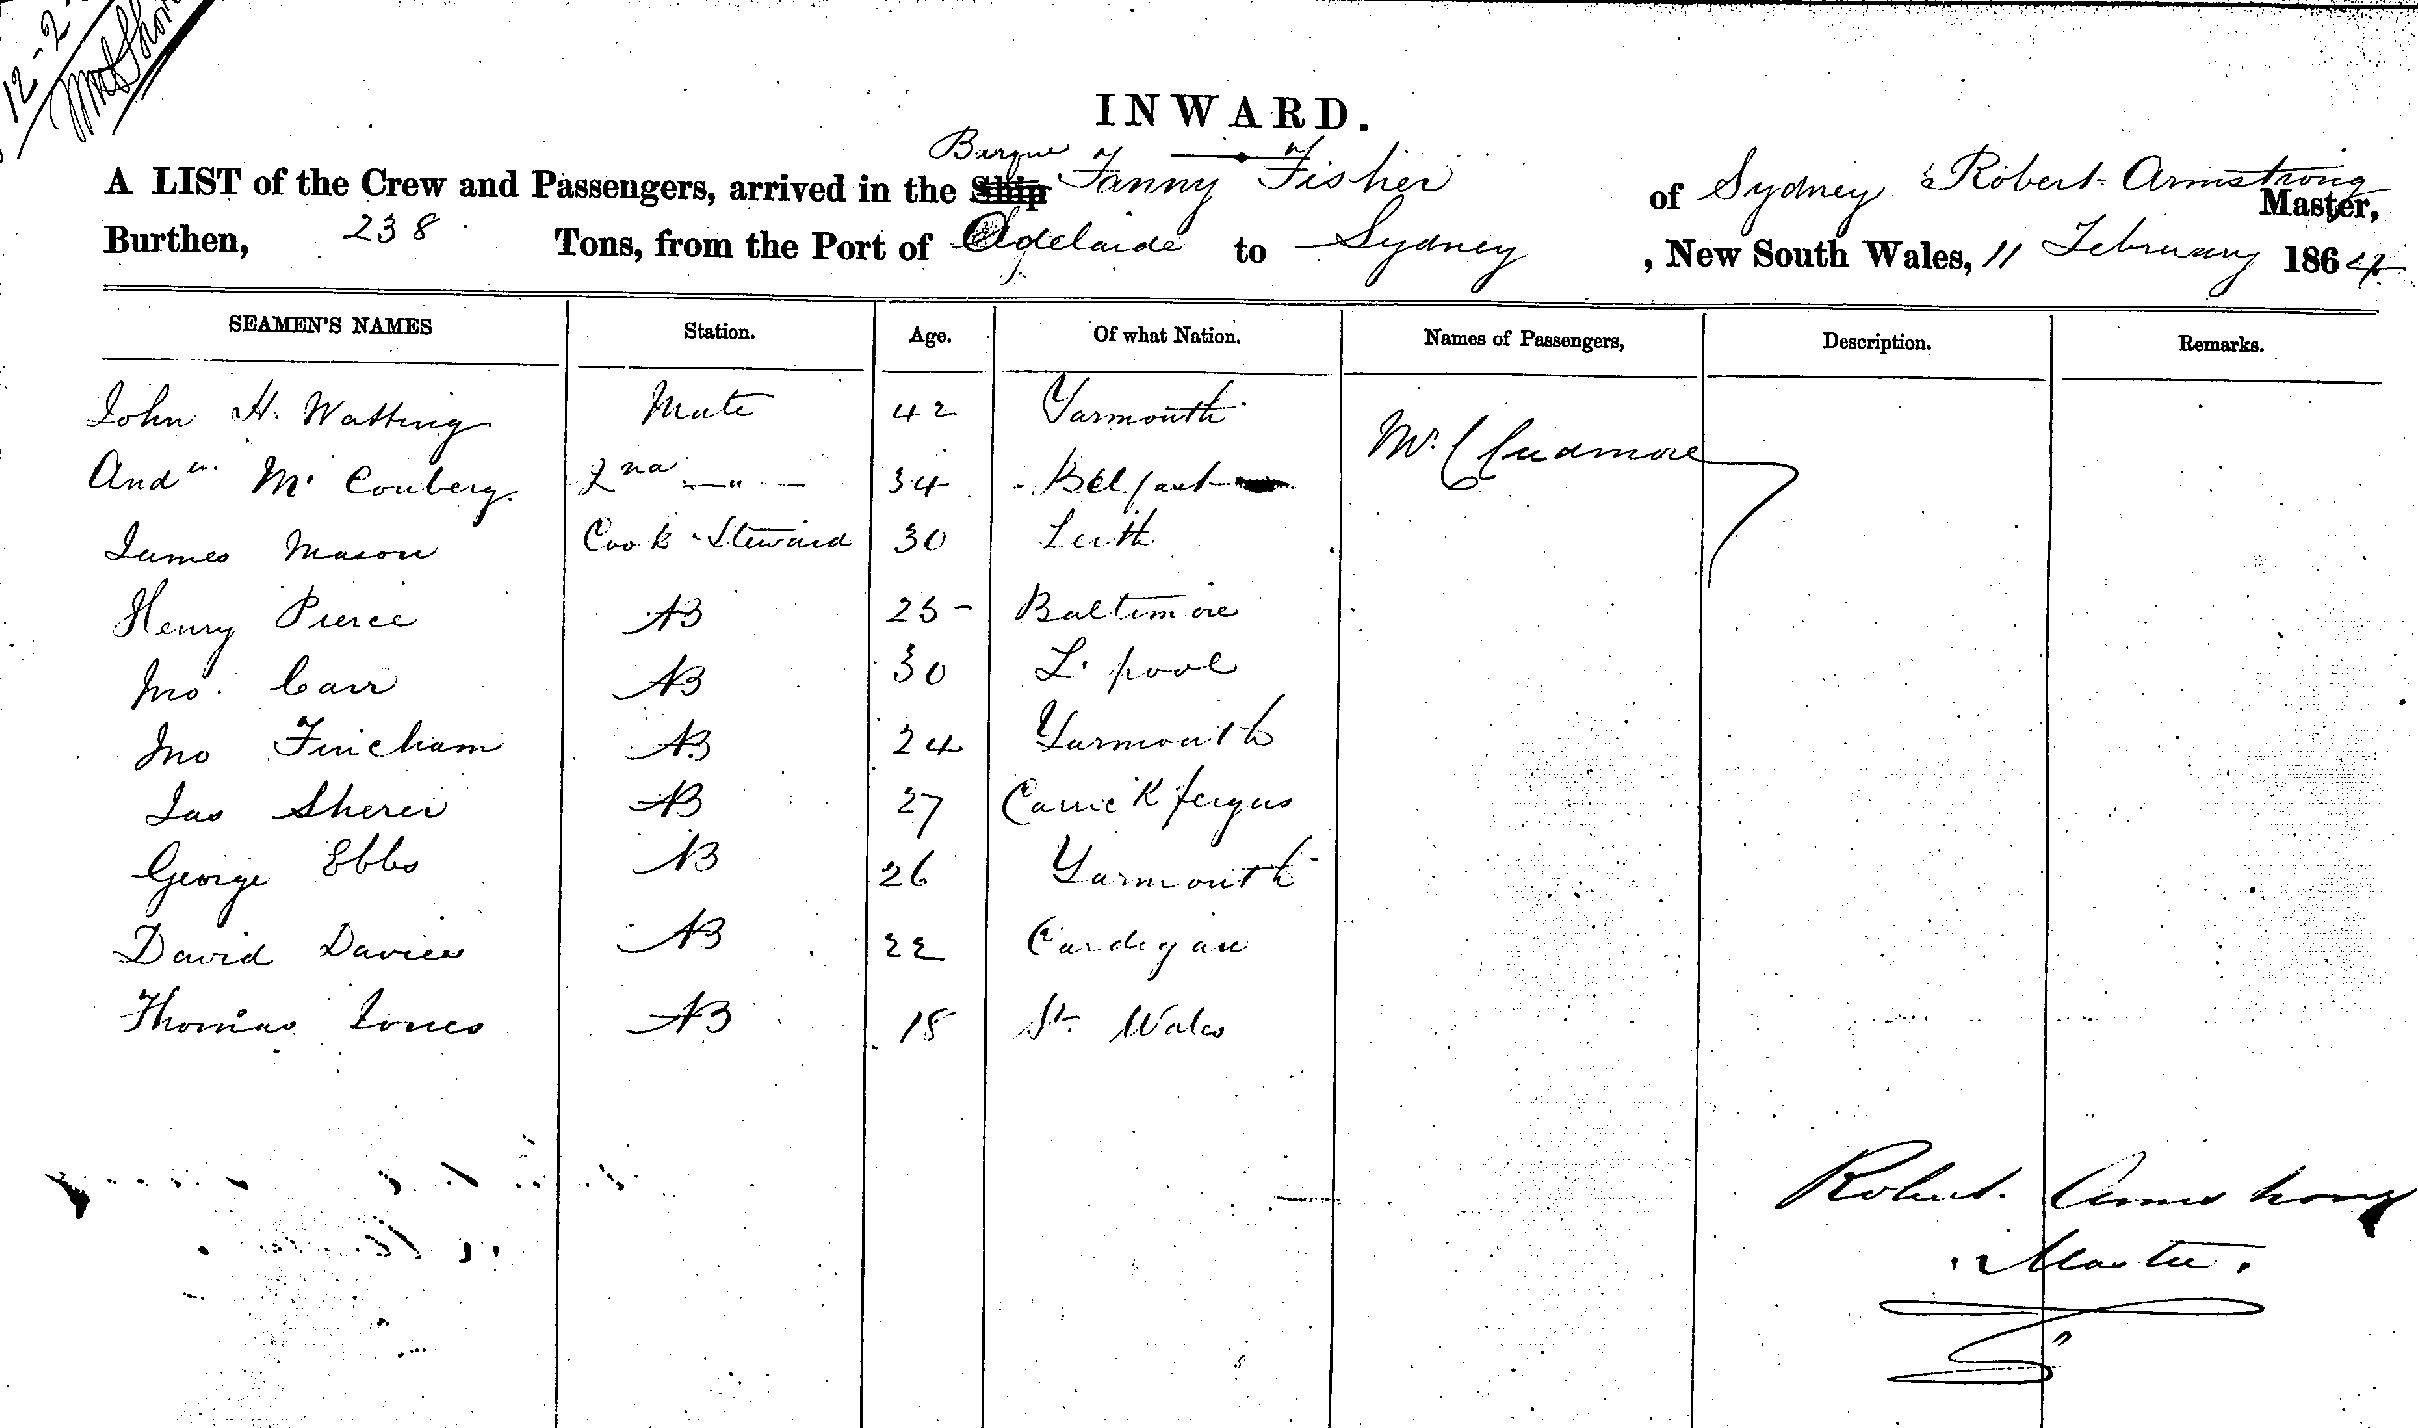 12-2-
INWARD.
Barque Fanny Fisher
A LIST of the Crew and Passengers, arrived in the Ship of Sydney Robert Armstrong Master,
Burthen, 238 Tons, from the Port of Adelaide to Sydney, New South Wales, 11 February 1864
SEAMEN'S NAMES Station. Age. Of what Nation. Names of Passengers, Description. Remarks.
John H. Watting Mate 42 Yarmouth Mr. Cudmore
Andw. Mc Conberg 2nd " 34 Belfast
James Mason Cook Steward 30 Leith
Henry Pierce AB 25 Baltimore
Jno. Carr AB 30 L. pool
Jno Fincham AB 24 Yarmouth
Jas Sherer AB 27 Carrickfergus
George Ebbs AB 26 Yarmouth
David Davies AB 22 Cardigan
Thomas Jones AB 18 Sth Wales
Robert Armstrong
Master.